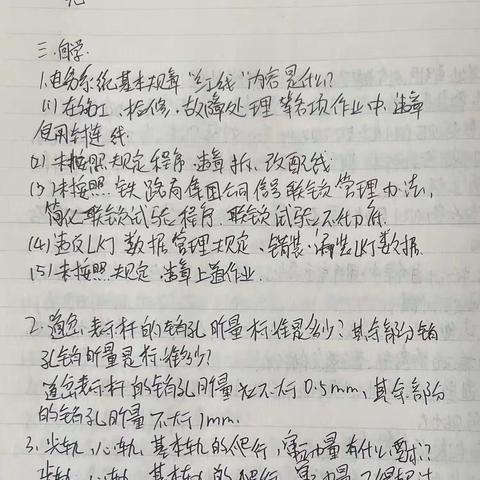 三.问学.
1.电务系统基本规章"红线"内容是什么?
(1)在施工、检修、故障处理等各项作业中,违章
使用封连线.
(2)未按照规定程序,违章拆、改配线.
(3)未按照铁路局集团公司信号联锁管理办法,
简化联锁试验程序,联锁试验不彻底.
(4)违反LKJ数据管理规定,错装、漏装LKJ数据.
(5)未按照规定,违章上道作业.
2.道岔表示杆的销孔旷量标准是多少?其余部分销
孔销旷量是标准多少?
道岔表示杆的销孔旷量应不大于0.5mm,其余部分
的销孔旷量不大于1mm.
3.尖轨、心轨、基本轨的爬行、窜动量有什么要求?
尖轨、心轨、基本轨的爬行、窜动量不得超过